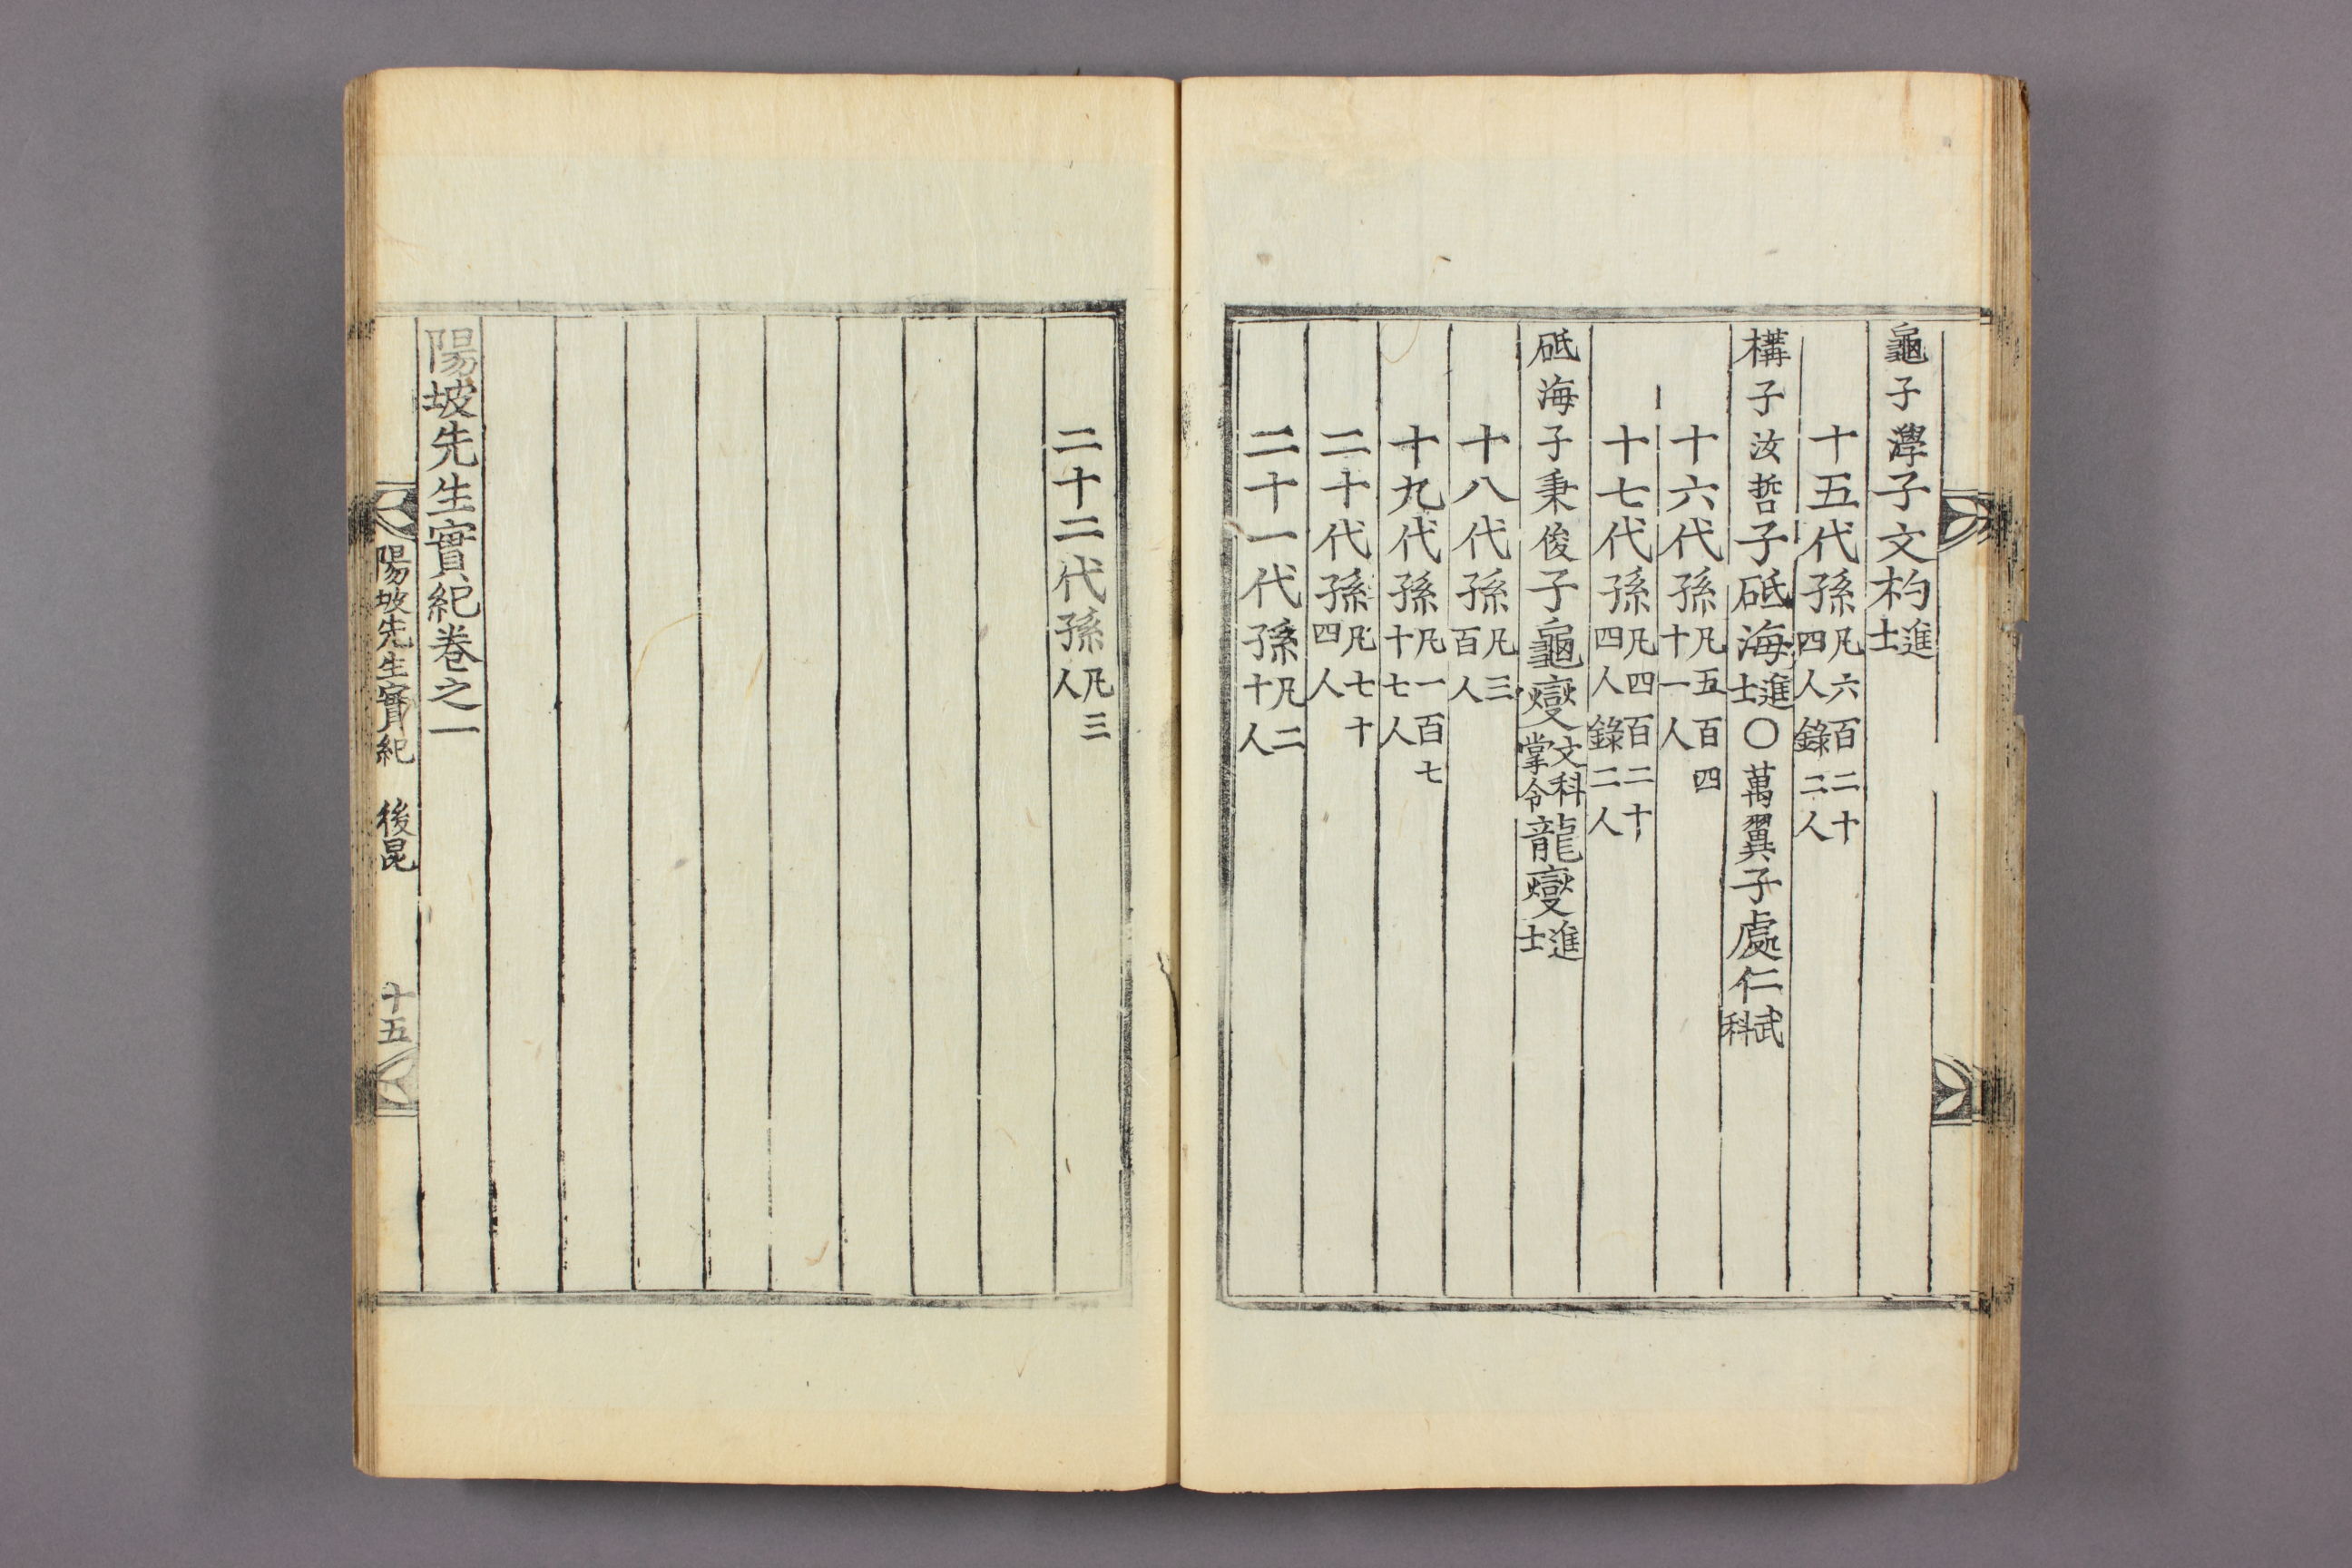 龜子灣子文杓進士
十五代孫凡六百二十四人錄二人
構子汝哲子砥海進士○萬翼子處仁武科
十六代孫凡五百四十一人
十七代孫凡四百二十四人錄二人
砥海子秉俊子龜變文科掌令龍變進士
十八代孫凡三百人
十九代孫凡一百七十七人
二十代孫凡七十四人
二十一代孫凡二十人
二十二代孫凡三人
陽坡先生實紀卷之一
陽坡先生實紀 後昆 十五